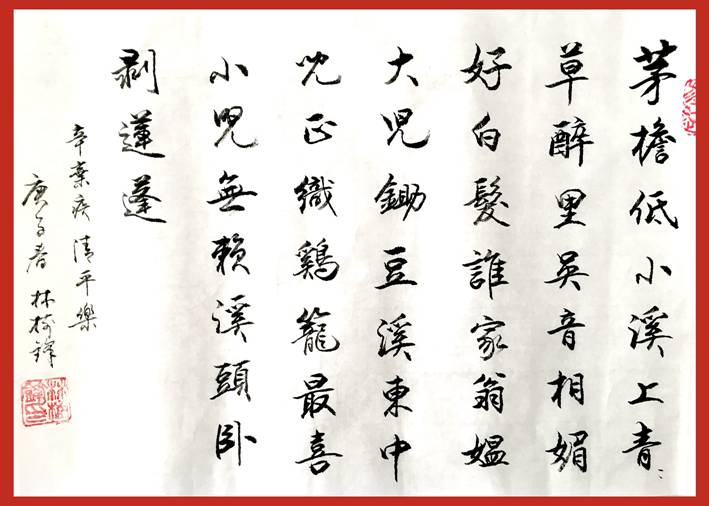 茅檐低小溪上青〻
草醉里吴音相媚
好白髮誰家翁媼
大兒鋤豆溪東中
兒正織鷄籠最喜
小兒無賴溪頭卧
剥蓮蓬
辛棄疾清平樂
庚子春林